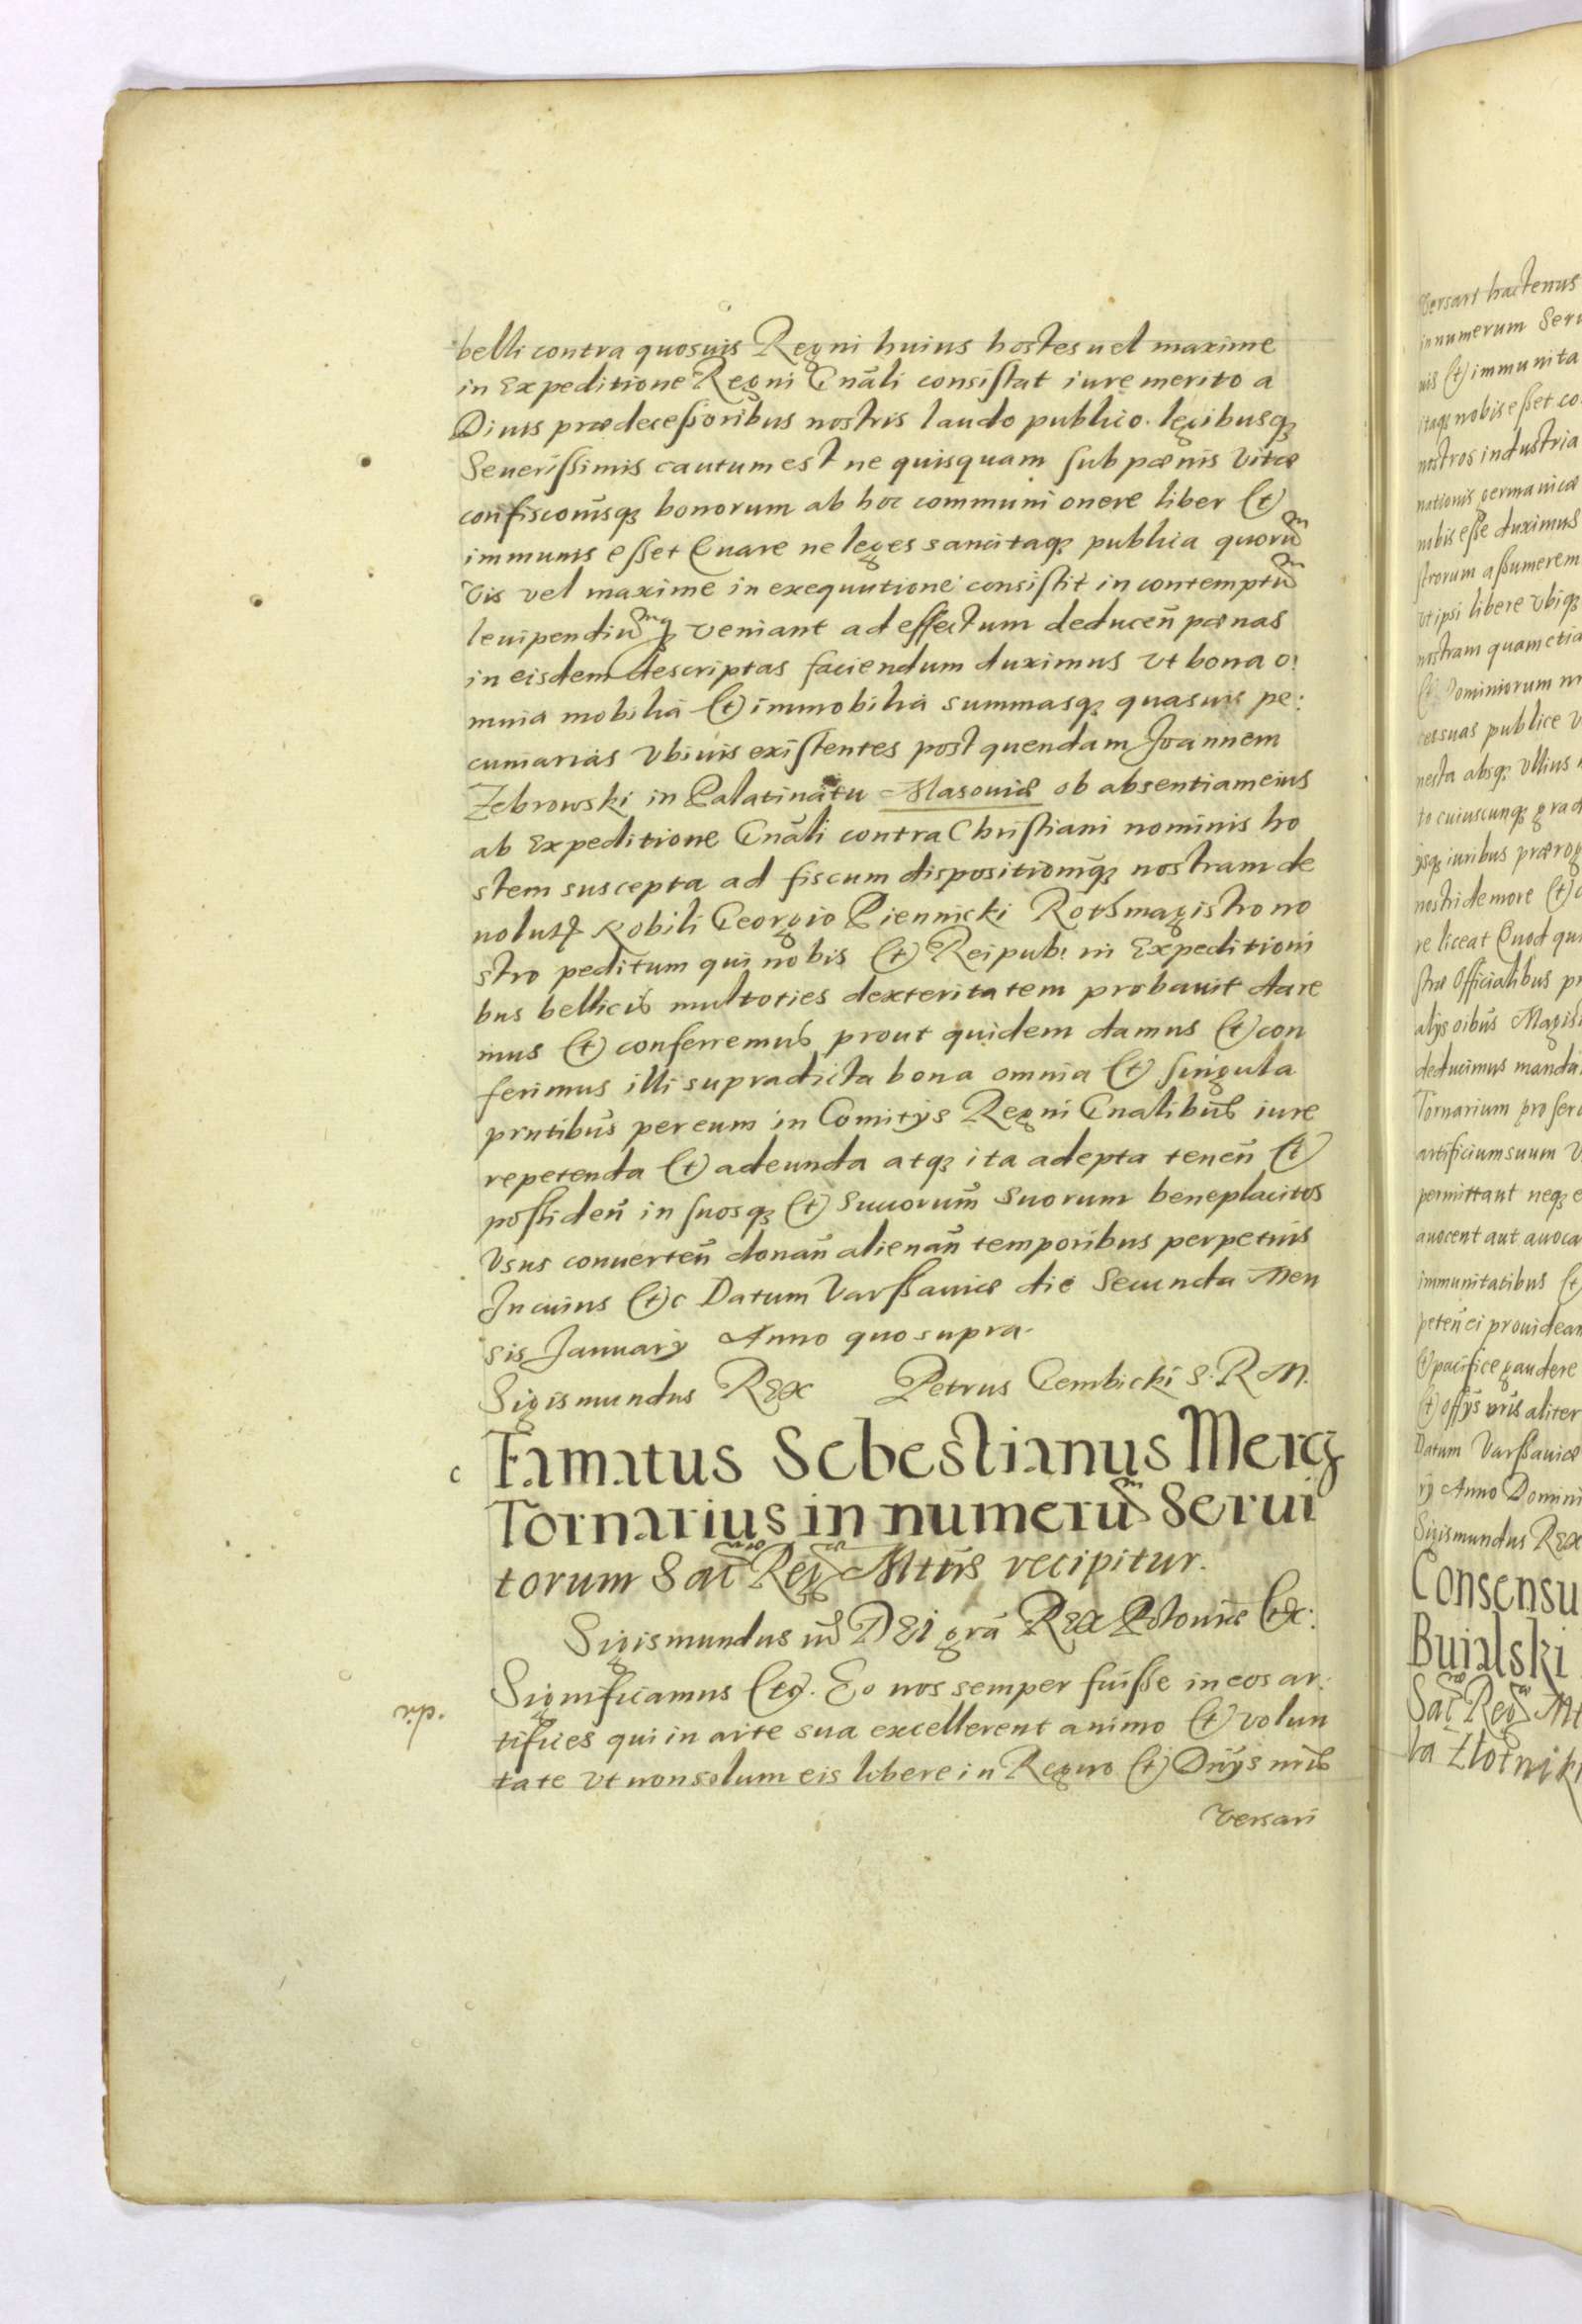 belli contra quosuis Regni huius hostes uel maxime
in Expeditione Regni Gnāli consistat iure merito a
Diuis prædecessoribus nostris laudo publico. legibusq3
Seuerissimis cautum est ne quisquam sub pœnis Vitæ
confisconīsq3 bonorum ab hoc communi onere liber et
immunis esset Quare ne leges sancitaq3 publica quorum
Vis vel maxime in exequutione consistit in contemptum
leuipendiumq3 veniant ad effectum deducen̄ pœnas
in eisdem descriptas faciendum duximus vt bona o:
mnia mobilia et immobilia summasq3 quasuis pe:
cuniarias vbiuis existentes post quendam Joannem
Zebrowski in Palatinatu Masouiæ ob absentiam eius
ab Expeditione Gnāli contra Christiani nominis ho
stem suscepta ad fiscum dispositionēq3 nostram de
uoluta Nobili Georgio Piennicki Rothmagistro no
stro peditum qui nobis et Reipub: in Expeditioni
bus bellicis multoties dexteritatem probauit dare
mus et conferremus prout quidem damus et con
ferimus illi supradicta bona omnia et singula
prntibūs per eum in Comitijs Regni Gnalibūs iure
repetenda et adeunda atq3 ita adepta tenen̄ et
possiden̄ in suosq3 et Succorum̄ Suorum beneplacitos
Vsus conuerten̄ donan̄ alienan̄ temporibus perpetuis
In cuius etc Datum Varssauiæ die Secunda Men
sis Januarij Anno quo supra.
Sigismundus REX Petrus Gembicki S. R. M.
c Famatus Sebestianus Mercz
Tornarius in numerum Serui
torum Sacræ Regiæ Mttis recipitur.
Sigismundus iiis DEI grā REX Poloniæ etc:
Significamus etc. Eo nos semper fuisse in eos ar:
tifices qui in arte sua excellerent animo et volun
tate vt non solum eis libere in Regno et Dnijs nrīs
Versari
Versari hactenus
in numerum Seru
uis et immunita
itaq3 nobis esset co
nostros industria
nationis germanicæ
nobis esse duximus
strorum assumerem
vt ipsi libere vbiq3
nostram quam etia
et Dominiorum n
res suas publice v
necta absq3 vllius
to cuiuscunq3 grad
ijsq3 iuribus prærog
nostri de more et
re liceat Quod qui
stræ Officialibus pr
alijs oibūs Magis
deducimus manda
Tornarium pro seru
artificium suum V
permittant neq3 e
auocent aut auoca
immunitatibus et
peten̄ ei prouidean
et pacifice gaudere
et offijs vrīs aliter
Datum Varssauiæ
rij Anno Domini
Sigismundus REX
Consensu
Buialski
Sacræ Regiæ Mt
la Złotniki